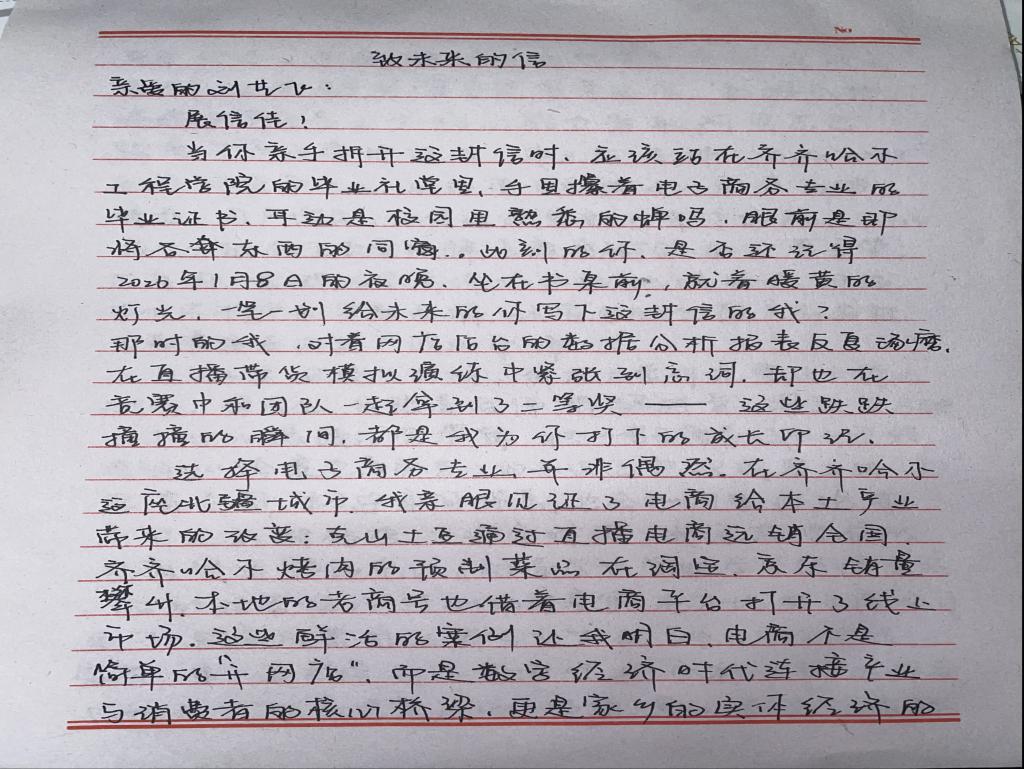 No
致未来的信
亲爱的刘艺飞：
展信佳！
当你亲手拆开这封信时，应该站在齐齐哈尔
工程学院的毕业礼堂里，手里攥着电子商务专业的
毕业证书，耳边是校园里熟悉的蝉鸣，眼前是即
将各奔东西的同窗。此刻的你，是否还记得
2026年1月8日的夜晚，坐在书桌前，就着暖黄的
灯光，一笔一划给未来的你写下这封信的我？
那时的我，对着网店后台的数据分析报表反复琢磨，
在直播带货模拟演练中紧张到忘词，却也在
竞赛中和团队一起拿到了二等奖——这些跌跌
撞撞的瞬间，都是我为你打下的成长印记。
选择电子商务专业并非偶然。在齐齐哈尔
这座北疆城市，我亲眼见证了电商给本土产业
带来的改变：克山土豆通过直播电商远销全国，
齐齐哈尔烤肉的预制菜品在调运，京东销量
攀升，本地的老商号也借着电商平台打开了线上
市场。这些鲜活的案例让我明白，电商不是
简单的“开网店”，而是数字经济时代连接产业
与消费者的核心桥梁，更是家乡的实体经济的